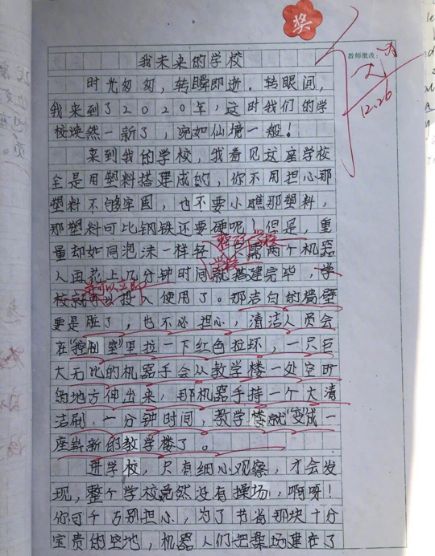 奖
我未来的学校
教师批改:
12.26
时光匆匆,转瞬即逝。转眼间,
我来到了2020年,这时我们的学
校焕然一新了,宛如仙境一般!
来到我的学校,我看见这座学校
全是用塑料搭建成的,你不用担心那
塑料不够牢固,也不要小瞧那塑料,
那塑料可比钢铁还要硬呢!但是,重
量却如同泡沫一样轻
学校
两个机器
人再花上几分钟时间就搭建完毕,学
校就可以投入使用了。那洁白的墙壁
要是脏了,也不必担心,清洁人员会
在"控制室"里拉一下红色拉环,一只巨
大无比的机器手会从教学楼一处空旷
的地方伸出来,那机器手持一个大清
洁刷,一分钟时间,教学楼就"变"成一
座崭新的教学楼了。
进学校,只有细心观察,才会发
现,整个学校竟然没有操场,啊呀!
你可千万别担心,为了节省那块十分
宝贵的空地,机器人们把操场建在了